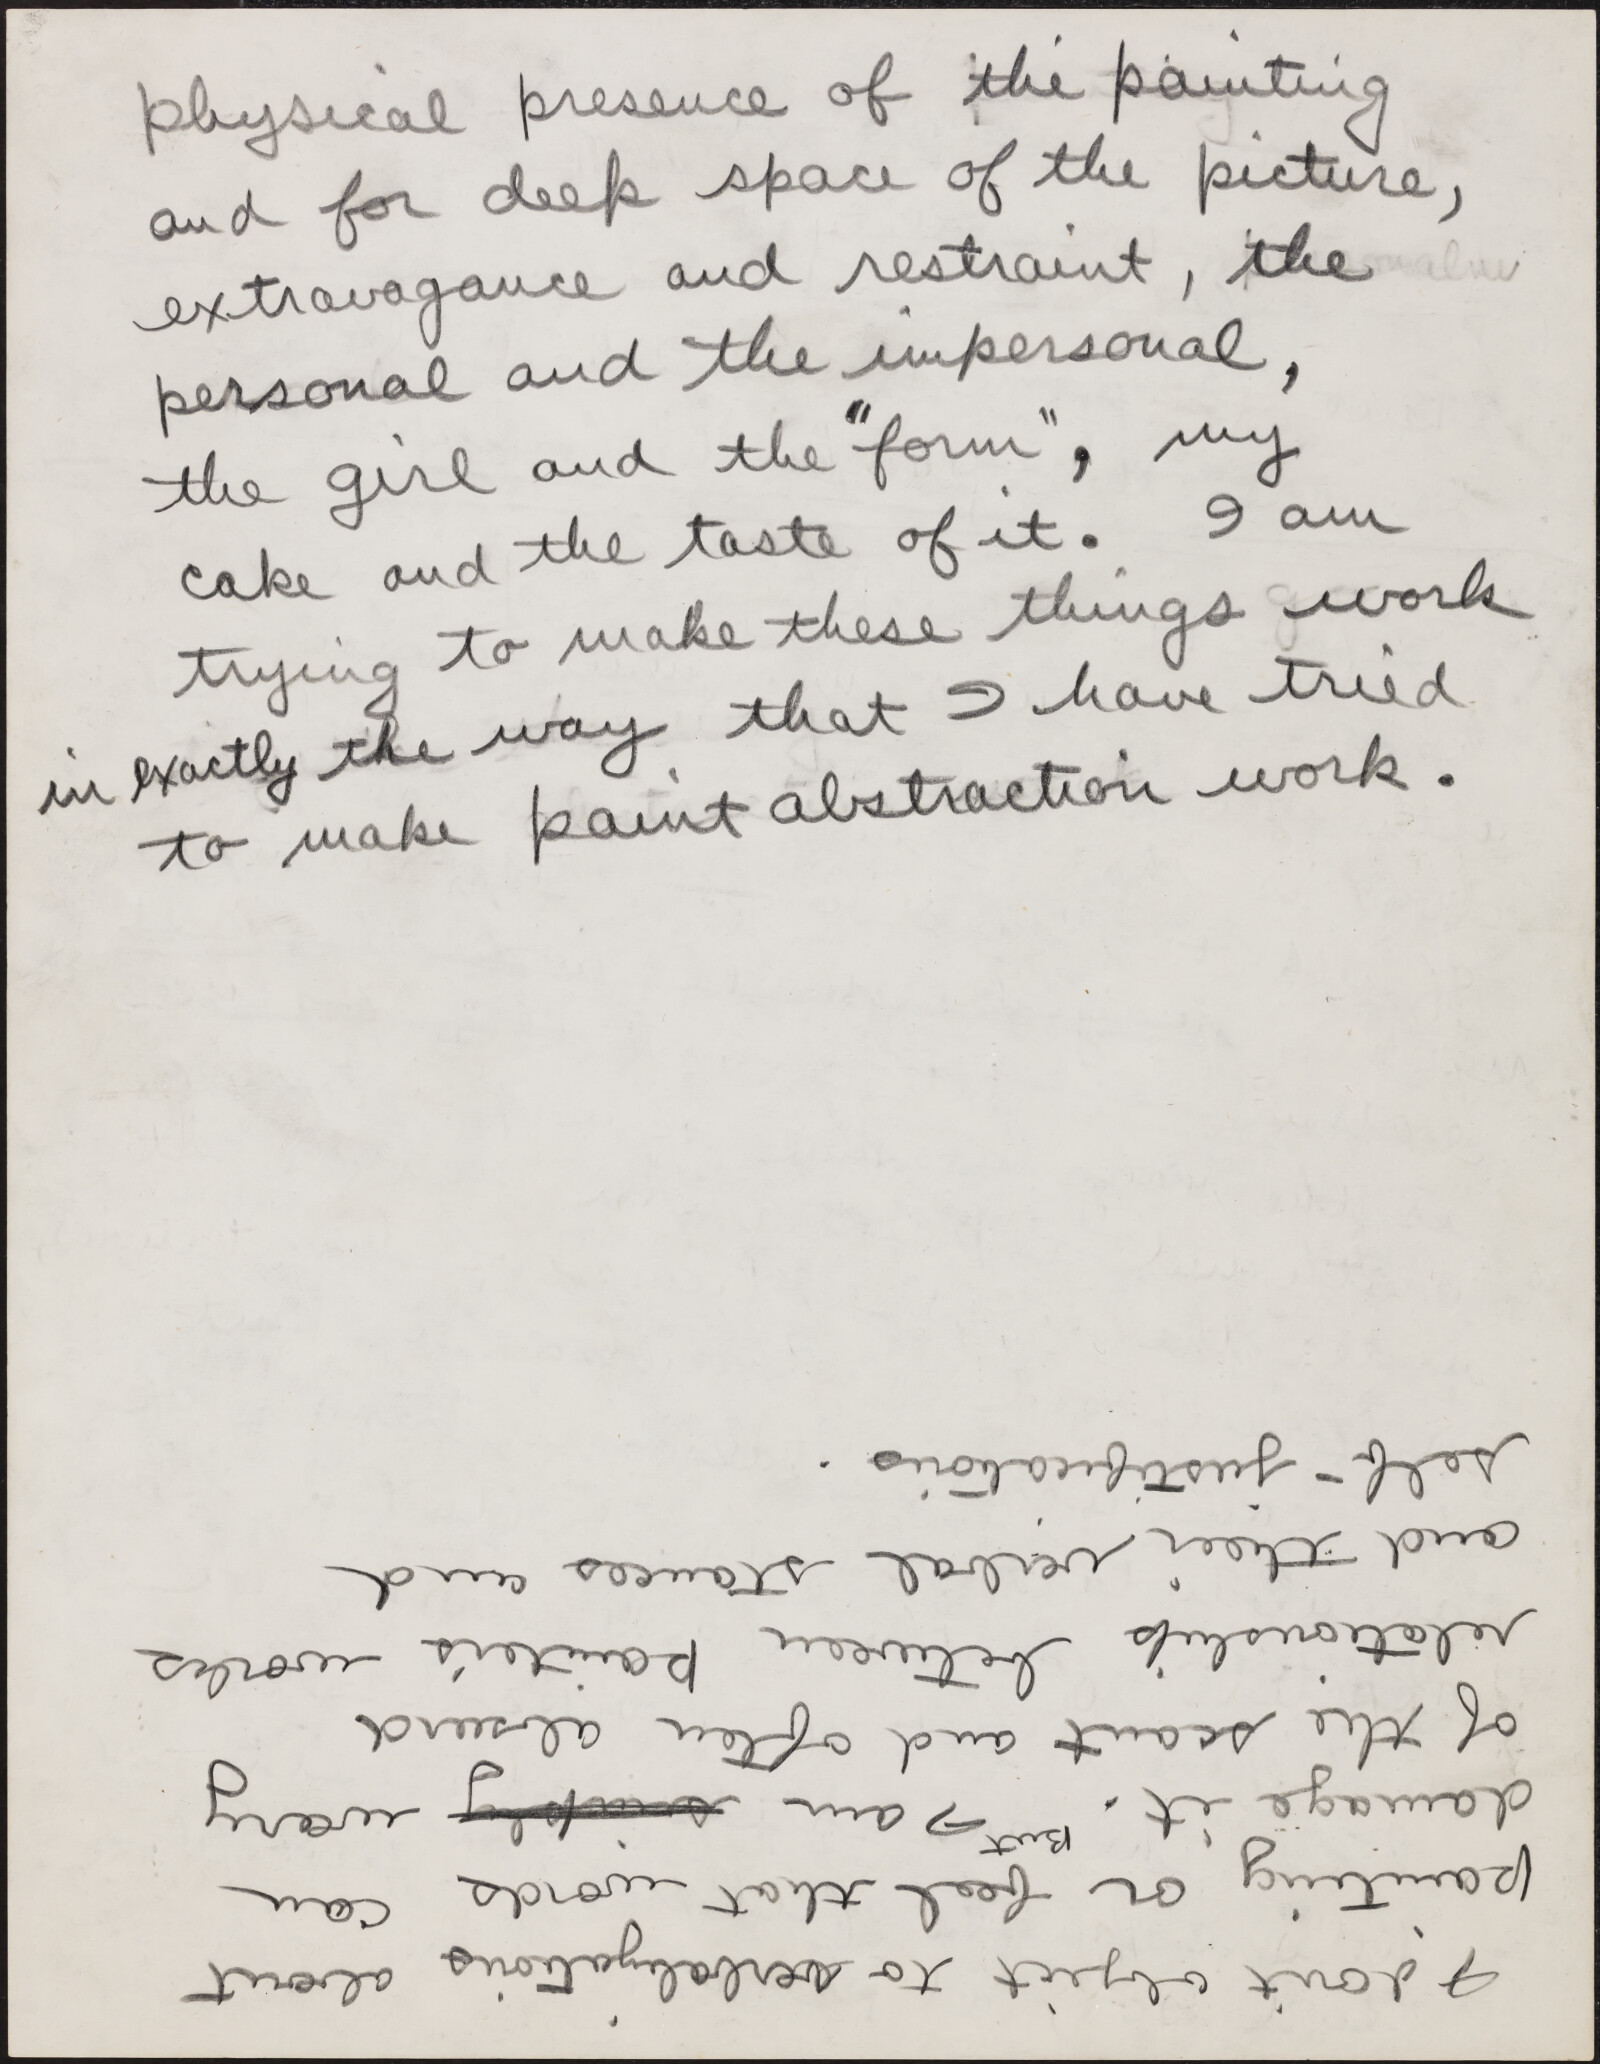 physical presence of the painting
and for deep space of the picture,
extravagance and restraint, the
personal and the impersonal,
the girl and the "form", my
cake and the taste of it. I am
trying to make these things work
in exactly the way that I have tried
to make paint abstraction work.
I don't object to verbalizations about
painting or feel that words can
damage it. But I am simply wary
of the scant and often absurd
relationships between painter's works
and their verbal stances and
self-justifications.